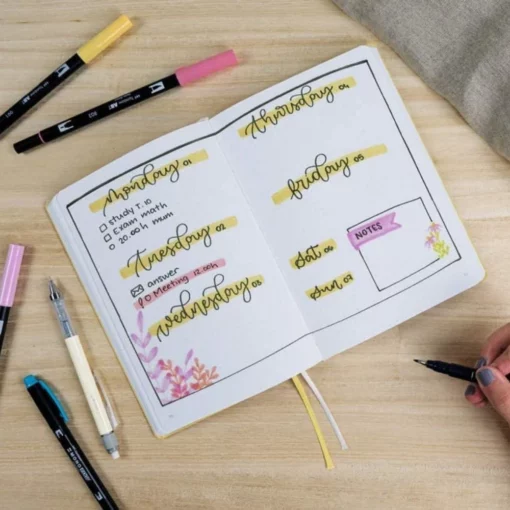 monday 01
study T.10
Exam math
20.00h mum
tuesday 02
answer
Meeting 12.00h
wednesday 03
thursday 04
friday 05
Sat 06
Sun 07
NOTES